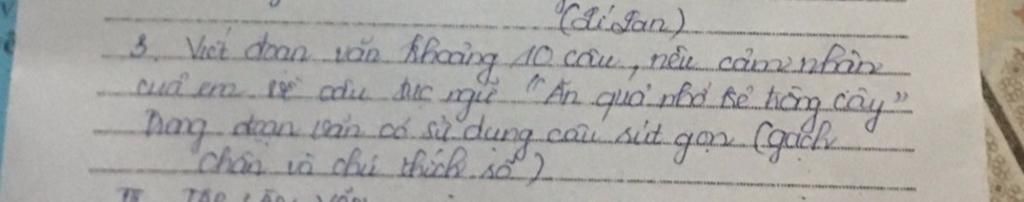 (Đi Đan)
3. Viết đoạn văn khoảng 10 câu, nêu cảm nhận
của em về câu tục ngữ "Ăn quả nhớ kẻ trồng cây"
Trong đoạn văn có sử dụng câu rút gọn (gạch
chân và chú thích số)